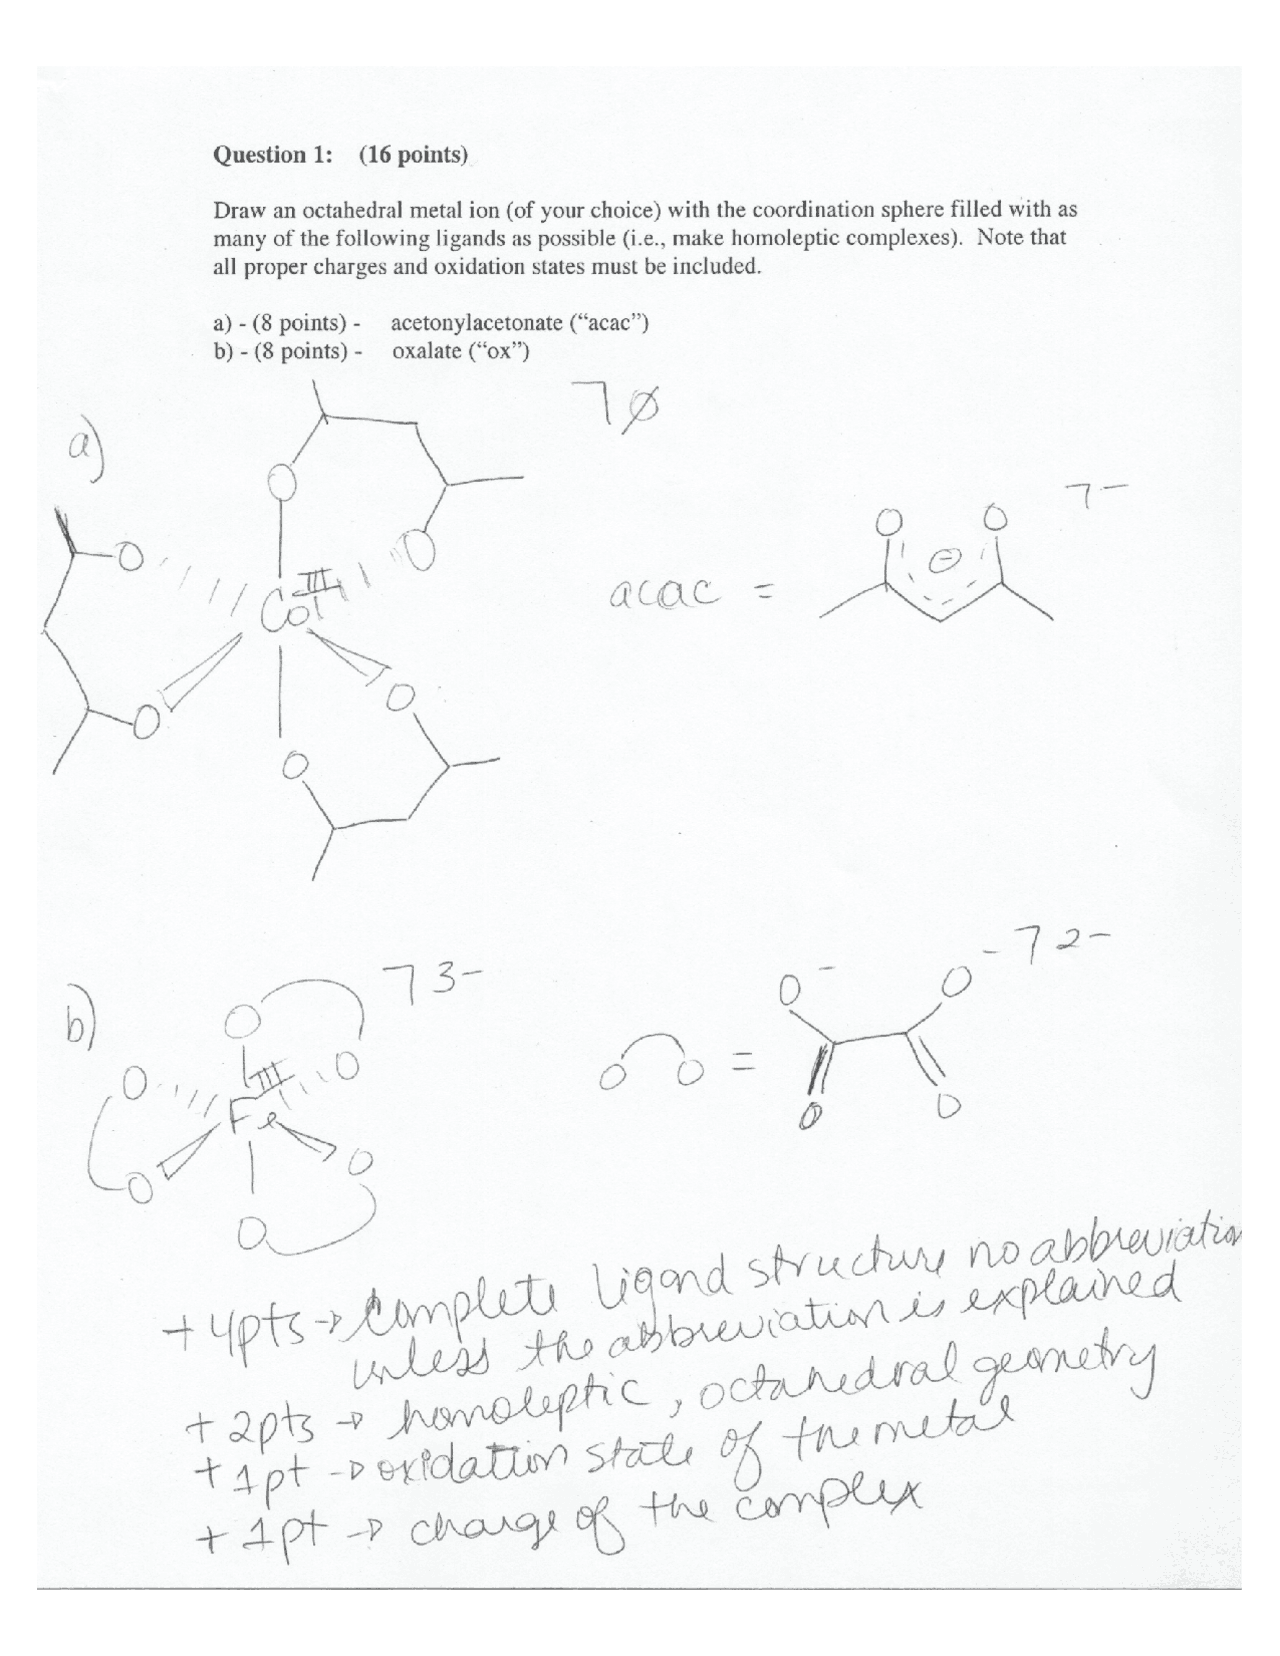 Question 1: (16 points)
Draw an octahedral metal ion (of your choice) with the coordination sphere filled with as
many of the following ligands as possible (i.e., make homoleptic complexes). Note that
all proper charges and oxidation states must be included.
a) - (8 points) - acetonylacetonate ("acac")
b) - (8 points) - oxalate ("ox")
a)
O
O
O
O
O
O
Co III
⏋Ø
acac =
O
O
⊖
⏋-
b)
O
O
O
O
O
O
Fe III
⏋3-
O O =
O-
O-
O
O
⏋2-
+ 4pts → complete ligand structure no abbreviation
unless the abbreviation is explained
+ 2pts → homoleptic, octahedral geometry
+ 1pt → oxidation state of the metal
+ 1pt → charge of the complex